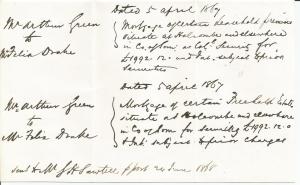 Dated 5 april 1867
Mr Arthur Green
to
Mr Felix Drake
Mortgage of certain Leasehold premises
situate at Holcombe and elsewhere
in Co of Som as Colr Security for
£1992.12.0 and Int. subject to prior
Securities
Dated 5 april 1867
Mr Arthur Green
to
Mr Felix Drake
Mortgage of certain Freehold Estate
situate at Holcombe and elsewhere
in Co of Som for securing £1992.12.0
& Int. subject to prior charges
sent to Mr Sawtell 24 June 1868